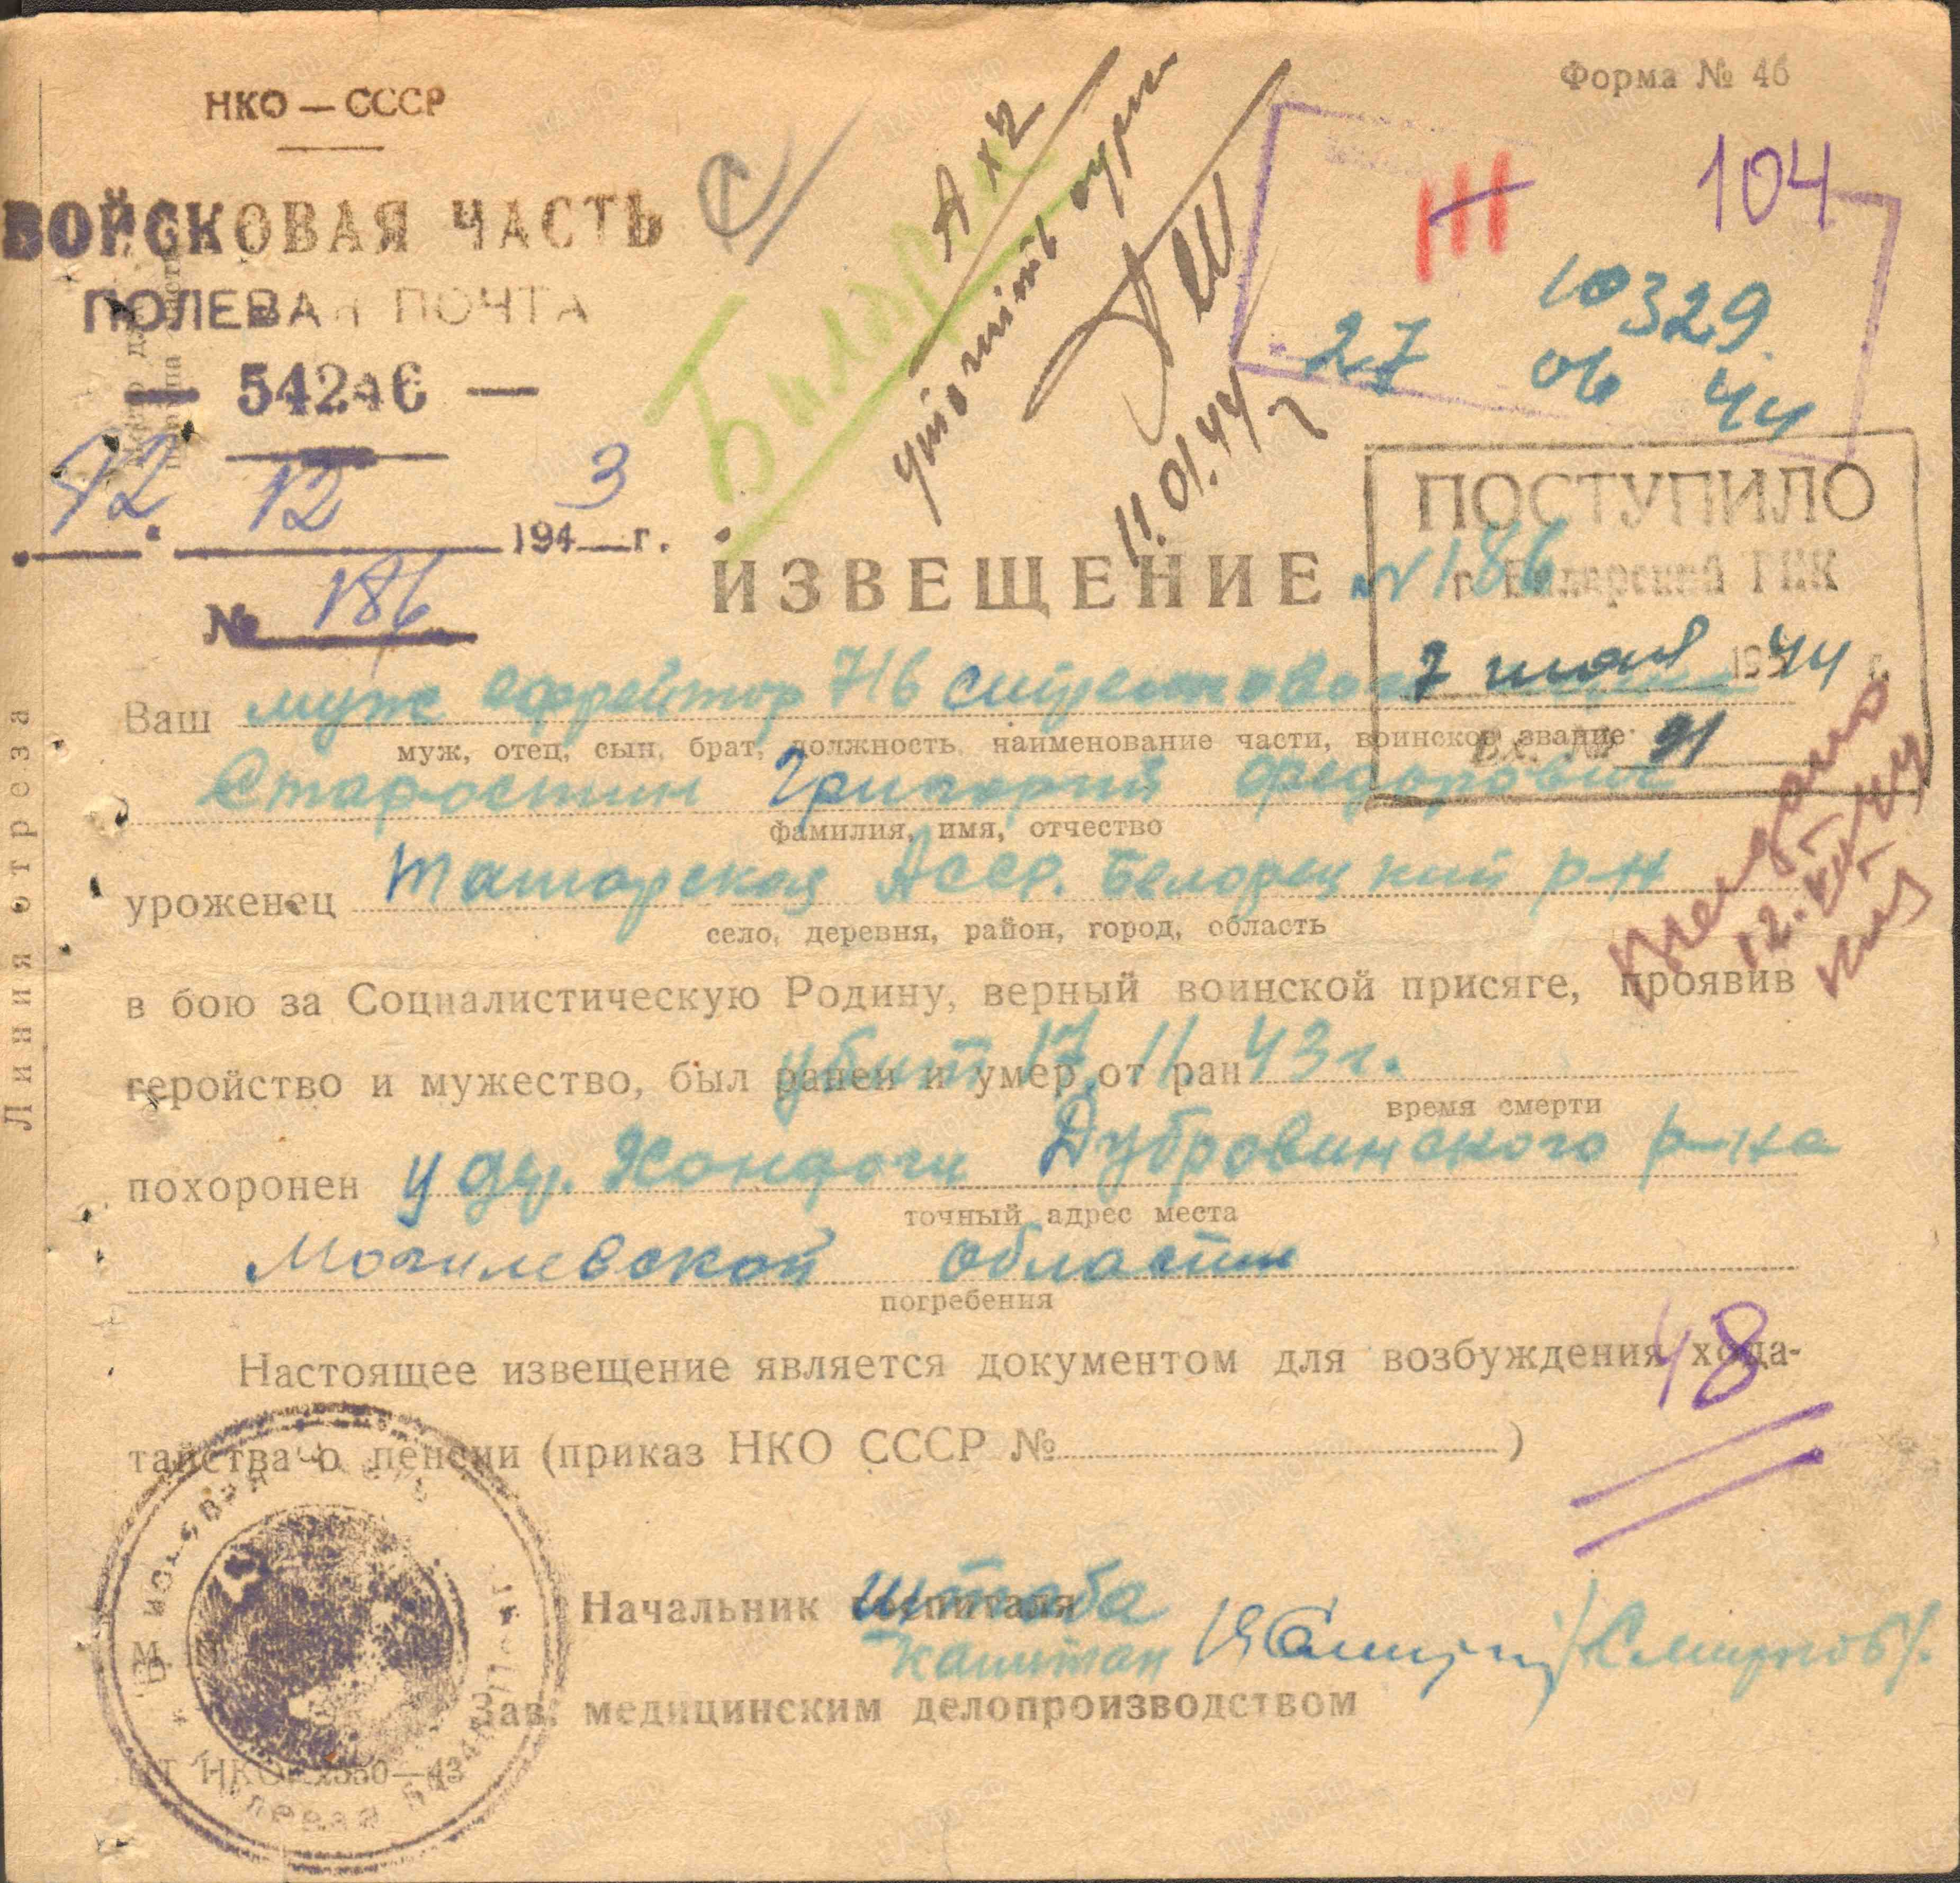 НКО — СССР
Форма № 46
ВОЙСКОВАЯ ЧАСТЬ
ПОЛЕВАЯ ПОЧТА
— 54246 —
12. 12 1943 г.
№ 186
Билярск
Ах2
уточнить
11.01.44
III
104
10329
27 06 44
ПОСТУПИЛО
г. Билярский
7 июля 1944 г.
Вх. № 91
ИЗВЕЩЕНИЕ №186
Ваш муж ефрейтор 716 стрелкового
муж, отец, сын, брат, должность, наименование части, воинское звание
Старостин Григорий Федорович
фамилия, имя, отчество
уроженец Татарская АССР. Белорецкий р-н
село, деревня, район, город, область
в бою за Социалистическую Родину, верный воинской присяге, проявив
геройство и мужество, был ранен и умер от ран убит 17.11.43 г.
время смерти
похоронен у дер. Хондоги Дубровинского р-на
точный адрес места
Могилевской области
погребения
Настоящее извещение является документом для возбуждения хода-
тайства о пенсии (приказ НКО СССР № )
48
Начальник госпиталя штаба
капитан /Смирнов/.
Зав. медицинским делопроизводством
Линия отреза